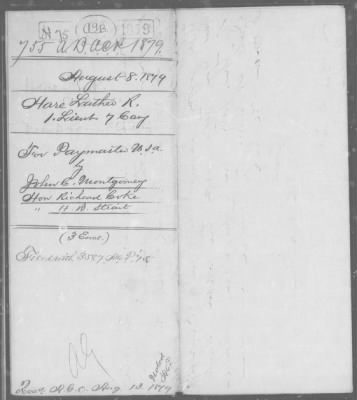 755 ACP 1879
August 8. 1879
Hare Luther R.
1. Lieut 7 Cav
For Paymaster U.S.A.
by
John C. Montgomery
Hon Richard Coke
" H. B. Strait
(3 Encs.)
Filed with 3587
Recd A.G.O. Aug 13. 1879